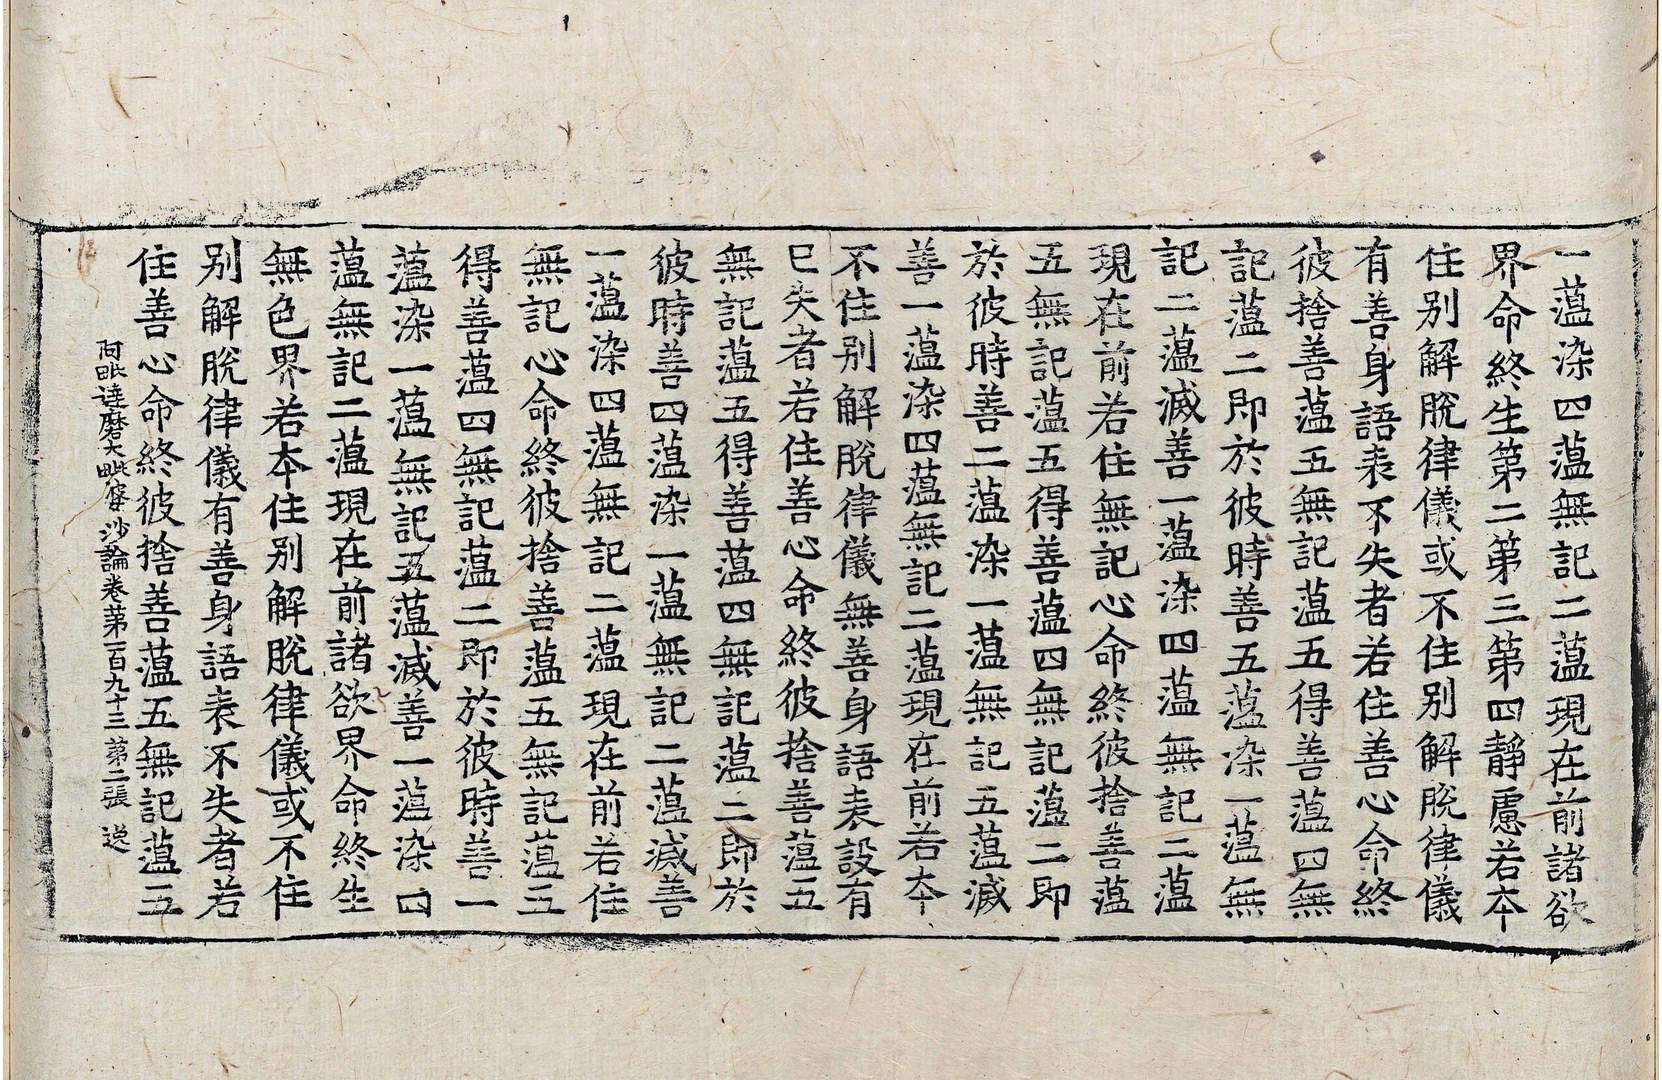 一薀染四薀無記二薀現在前諸欲
界命終生第二第三第四靜慮若本
住別解脫律儀或不住別解脫律儀
有善身語表不失者若住善心命終
彼捨善薀五無記薀五得善薀四無
記薀二即於彼時善五薀染一薀無
記二薀滅善一薀染四薀無記二薀
現在前若住無記心命終彼捨善薀
五無記薀五得善薀四無記薀二即
於彼時善二薀染一薀無記五薀滅
善一薀染四薀無記二薀現在前若本
不住別解脫律儀無善身語表設有
已失者若住善心命終彼捨善薀五
無記薀五得善薀四無記薀二即於
彼時善四薀染一薀無記二薀滅善
一薀染四薀無記二薀現在前若住
無記心命終彼捨善薀五無記薀五
得善薀四無記薀二即於彼時善一
薀染一薀無記五薀滅善一薀染四
薀無記二薀現在前諸欲界命終生
無色界若本住別解脫律儀或不住
別解脫律儀有善身語表不失者若
住善心命終彼捨善薀五無記薀五
阿毗達磨大毗婆沙論卷第一百九十三 第二張 𨓍